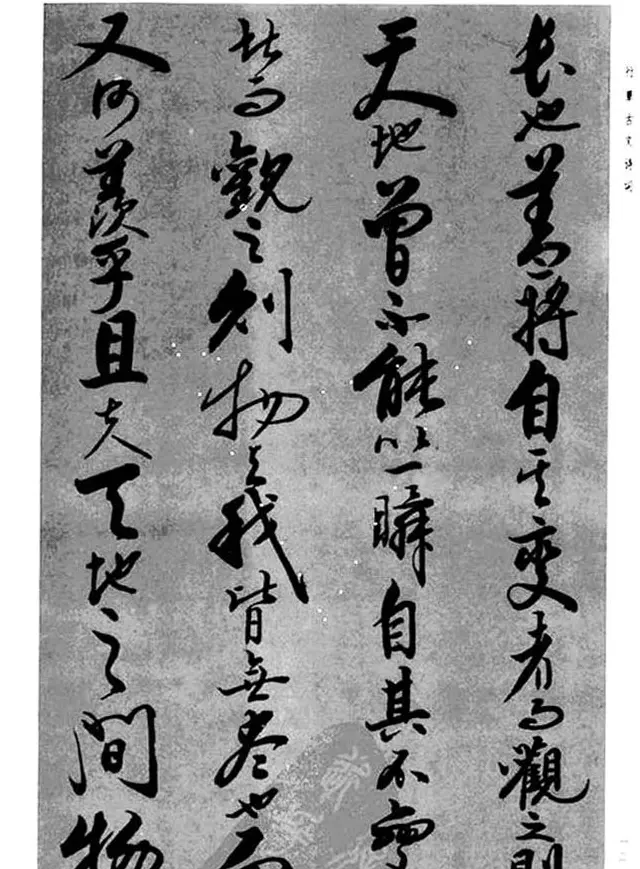 行草古文诗词
長也盖將自其变者而觀之則
天地曾不能以一瞬自其不變
者而觀之則物與我皆無盡也而
又何羨乎且夫天地之間物